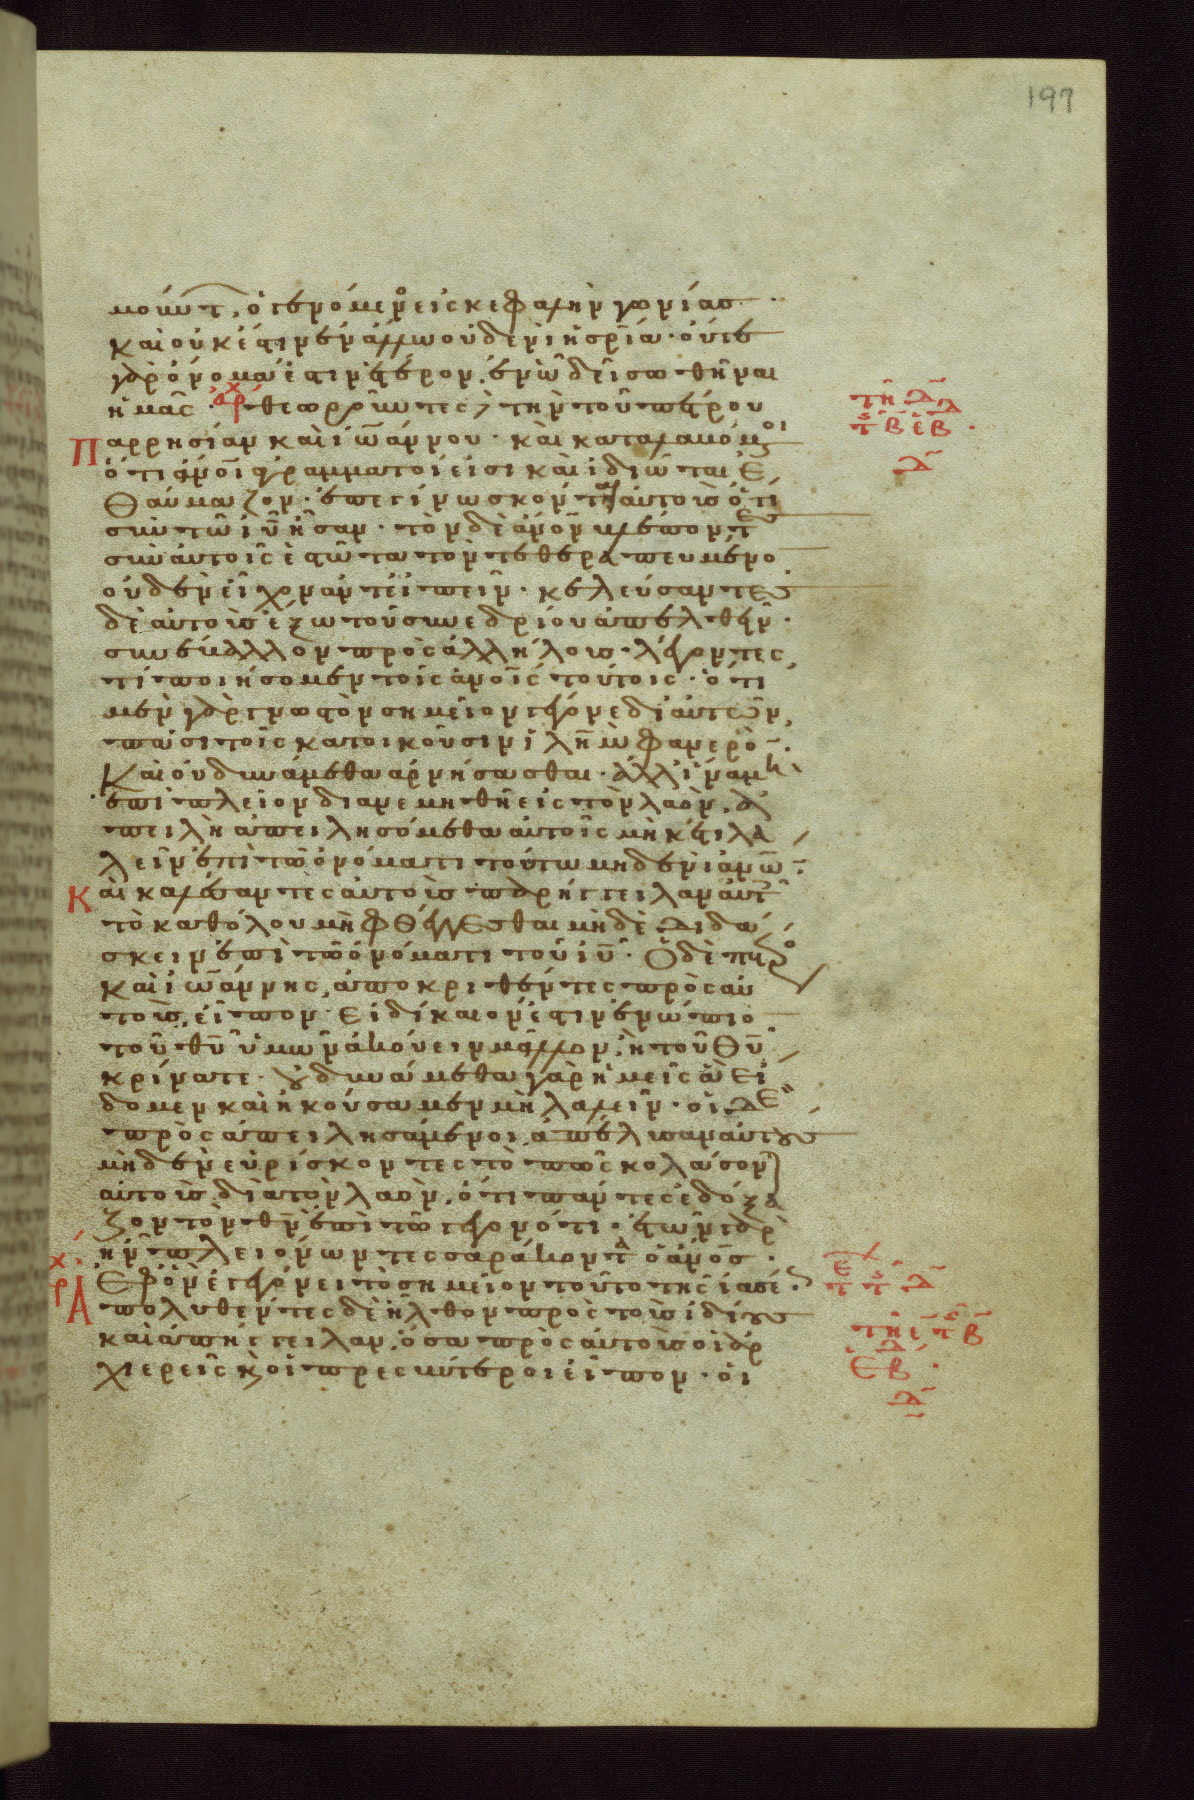 197
μούντ, ὁ γενόμενος εἰς κεφαλὴν γωνίασ·
καὶ οὐκ ἔστιν ἐν ἄλλω οὐδενὶ ἡ σρία· οὔτε
γὰρ ὄνομα ἐστιν ἕτερον, ἐν ὧ δεῖ σωθῆναι
ἡμᾶς· ἀρχ θεωροῦντες τὴν τοῦ πέτρου
παρρησίαν καὶ ἰωάννου· καὶ καταλαβόμενοι
ὅτι ἄνοι ἀγράμματοί εἰσι καὶ ἰδιῶται ἐ
θαύμαζον· ἐπεγίνωσκόν τε αὐτοὺσ ὅτι
σὺν τῶ ιυ ἦσαν· τὸν δὲ ἄνον βλέποντεσ
σὺν αὐτοῖς ἑστῶτα τὸν τεθεραπευμένο
οὐδὲν εἶχον ἀντειπεῖν· κελεύσαντεσ
δὲ αὐτοὺσ ἔξω τοῦ συνεδρίου ἀπελθεῖν·
συνέβαλλον πρὸς ἀλλήλουσ λέγοντες,
τί ποιήσομεν τοῖς ἀνοις τούτοις· ὅτι
μὲν γὰρ γνωστὸν σημεῖον γέγονε δι αὐτῶν,
πᾶσι τοῖς κατοικοῦσιν ιλημ φανερό·
καὶ οὐ δυνάμεθα ἀρνήσασθαι· ἀλλ ἵνα μὴ
ἐπὶ πλεῖον διανεμηθῆ εἰς τὸν λαὸν, ἀ
πειλῆ ἀπειλησόμεθα αὐτοῖς μηκέτι λα
λεῖν ἐπὶ τῶ ὀνόματι τούτω μηδενὶ ἀνων·
καὶ καλέσαντες αὐτοὺσ παρήγγειλαν αὐτ
τὸ καθόλου μὴ φθέγγεσθαι μηδὲ διδά
σκειν ἐπὶ τῶ ὀνόματι τοῦ ιυ· ὁ δὲ πέτρος
καὶ ἰωάννης, ἀποκριθέντες πρὸς αὐ
τοὺσ, εἶπον· εἰ δίκαιον ἐστιν ἐνώπιο
τοῦ θυ ὑμῶν ἀκούειν μᾶλλον, ἢ τοῦ θυ
κρίνατε· οὐ δυνάμεθα γὰρ ἡμεῖς ἃ εἴ
δομεν καὶ ἠκούσαμεν μὴ λαλεῖν· οἱ δὲ
προσαπειλησάμενοι ἀπέλυσαν αὐτοὺσ
μηδὲν εὑρίσκοντες τὸ πῶς κολάσον
αὐτοὺσ διὰ τὸν λαὸν, ὅτι πάντες ἐδόξα
ζον τὸν θν ἐπὶ τῶ γεγονότι· ἐτῶν γὰρ
ἦν πλειόνων τεσσαράκοντα ὁ ἄνοσ·
ἐφ ὃν ἐγεγόνει τὸ σημεῖον τοῦτο τῆς ἰάσε·
ἀπολυθέντες δὲ ἦλθον πρὸς τοὺσ ἰδίουσ
καὶ ἀπήγγειλαν, ὅσα πρὸς αὐτοὺσ οἱ ἀρ
χιερεῖς καὶ οἱ πρεσβύτεροι εἶπον· οἱ